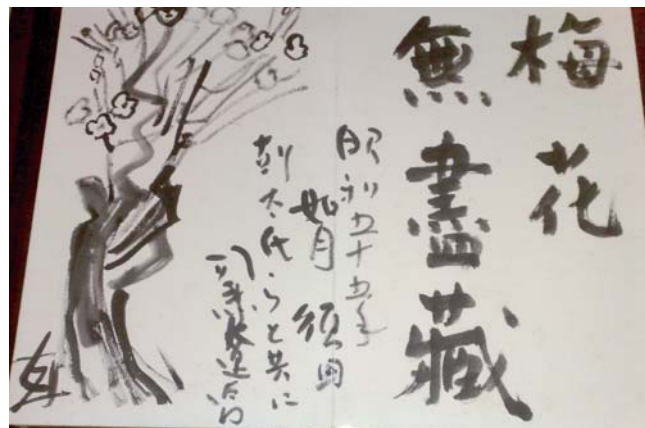 梅花
無盡藏
昭和五十五年
如月 須田
剋太氏らと共に
司馬遼太郎